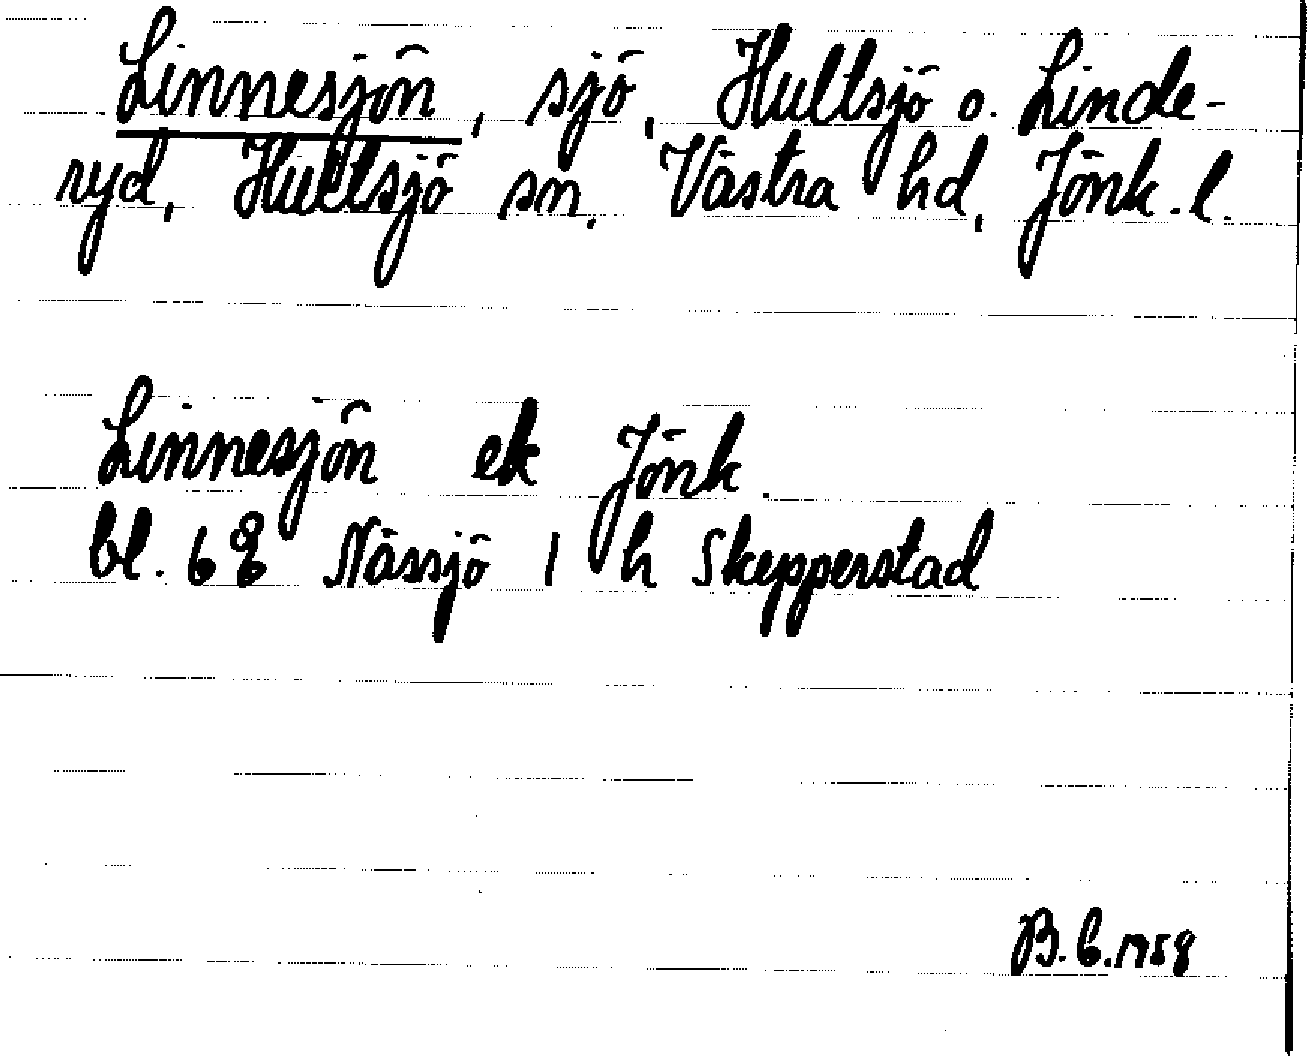 Linnesjön, sjö, Hultsjö o. Linde-
ryd, Hultsjö sn. Västra hd, Jönk. l.
Linnesjön ek Jönk.
bl. 68 Nässjö 1 h Skepperstad
B. C. 1958